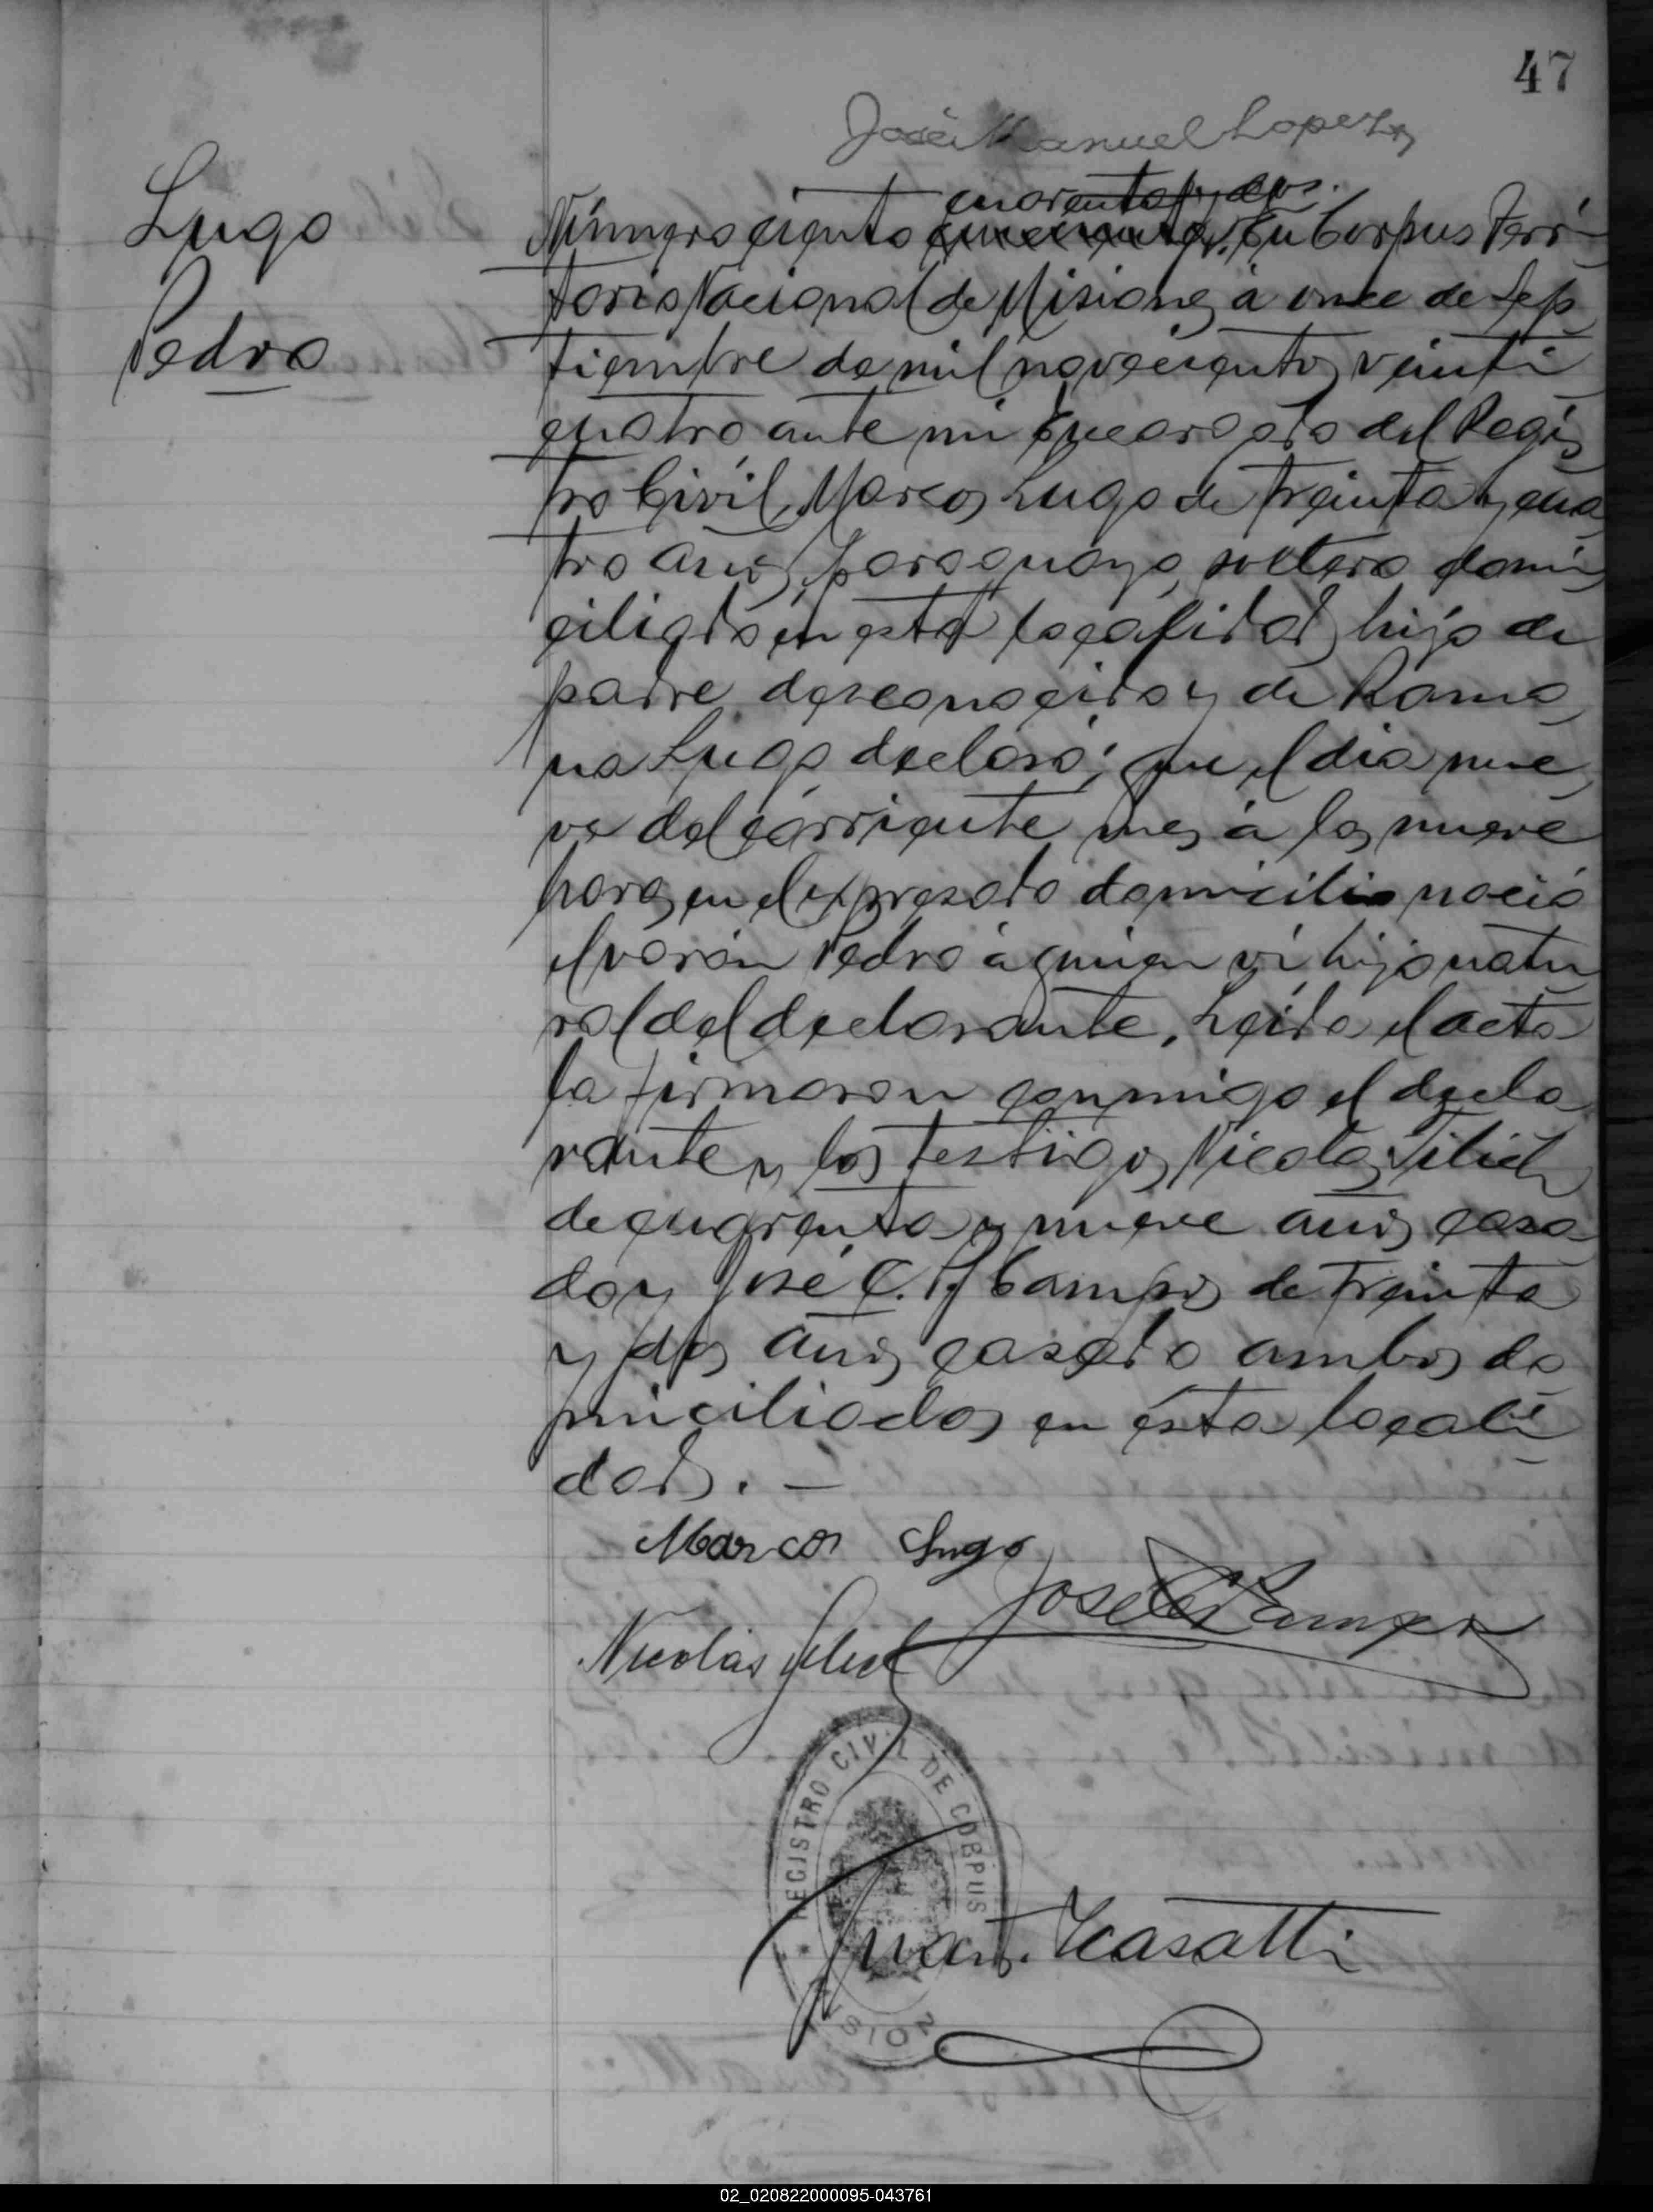 47
José Manuel Lopez
Lugo
Pedro
cuarenta y dos.
Número ciento cincuenta. En Corpus Terri
torio Nacional de Misiones á once de Sep
tiembre de mil novecientos veinti
cuatro ante mi Encargado del Regis
tro Civil, Marcos Lugo de treinta y cua
tro años, paraguayo, soltero domi
ciliado en esta localidad, hijo de
padre desconocido y de Ramo
na Lugo declaró; que el dia nue
ve del corriente mes á las nueve
horas, en el expresado domicilio nació
el varón Pedro á quien ví hijo natu
ral del declarante. Leida el acta
la firmaron conmigo el decla
rante y los testigos Nicolas
de cuarenta y nueve años casa
do y José C. Campos de treinta
y dos años casado ambos do
miciliados en ésta locali
dad. —
Marcos Lugo
José Campos
Nicolás
REGISTRO CIVIL DE CORPUS
Juan Casatti
02_020822000095-043761